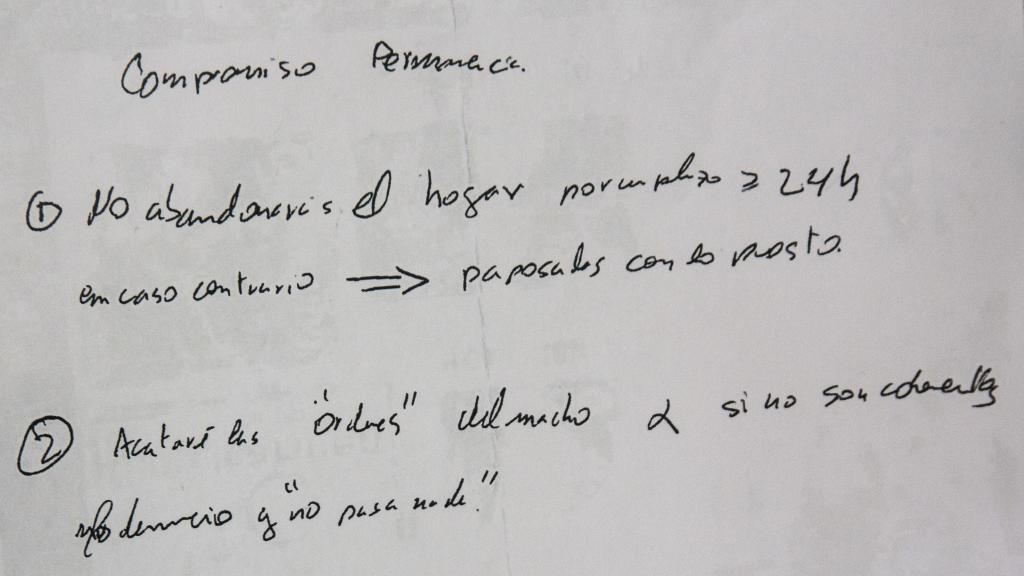 Compromiso
① No abandonaréis el hogar por un plazo ≥ 24h
en caso contrario ⇒ con lo puesto.
② Acataré las "órdenes" del macho α si no son coherentes
denuncio y "no pasa nada".